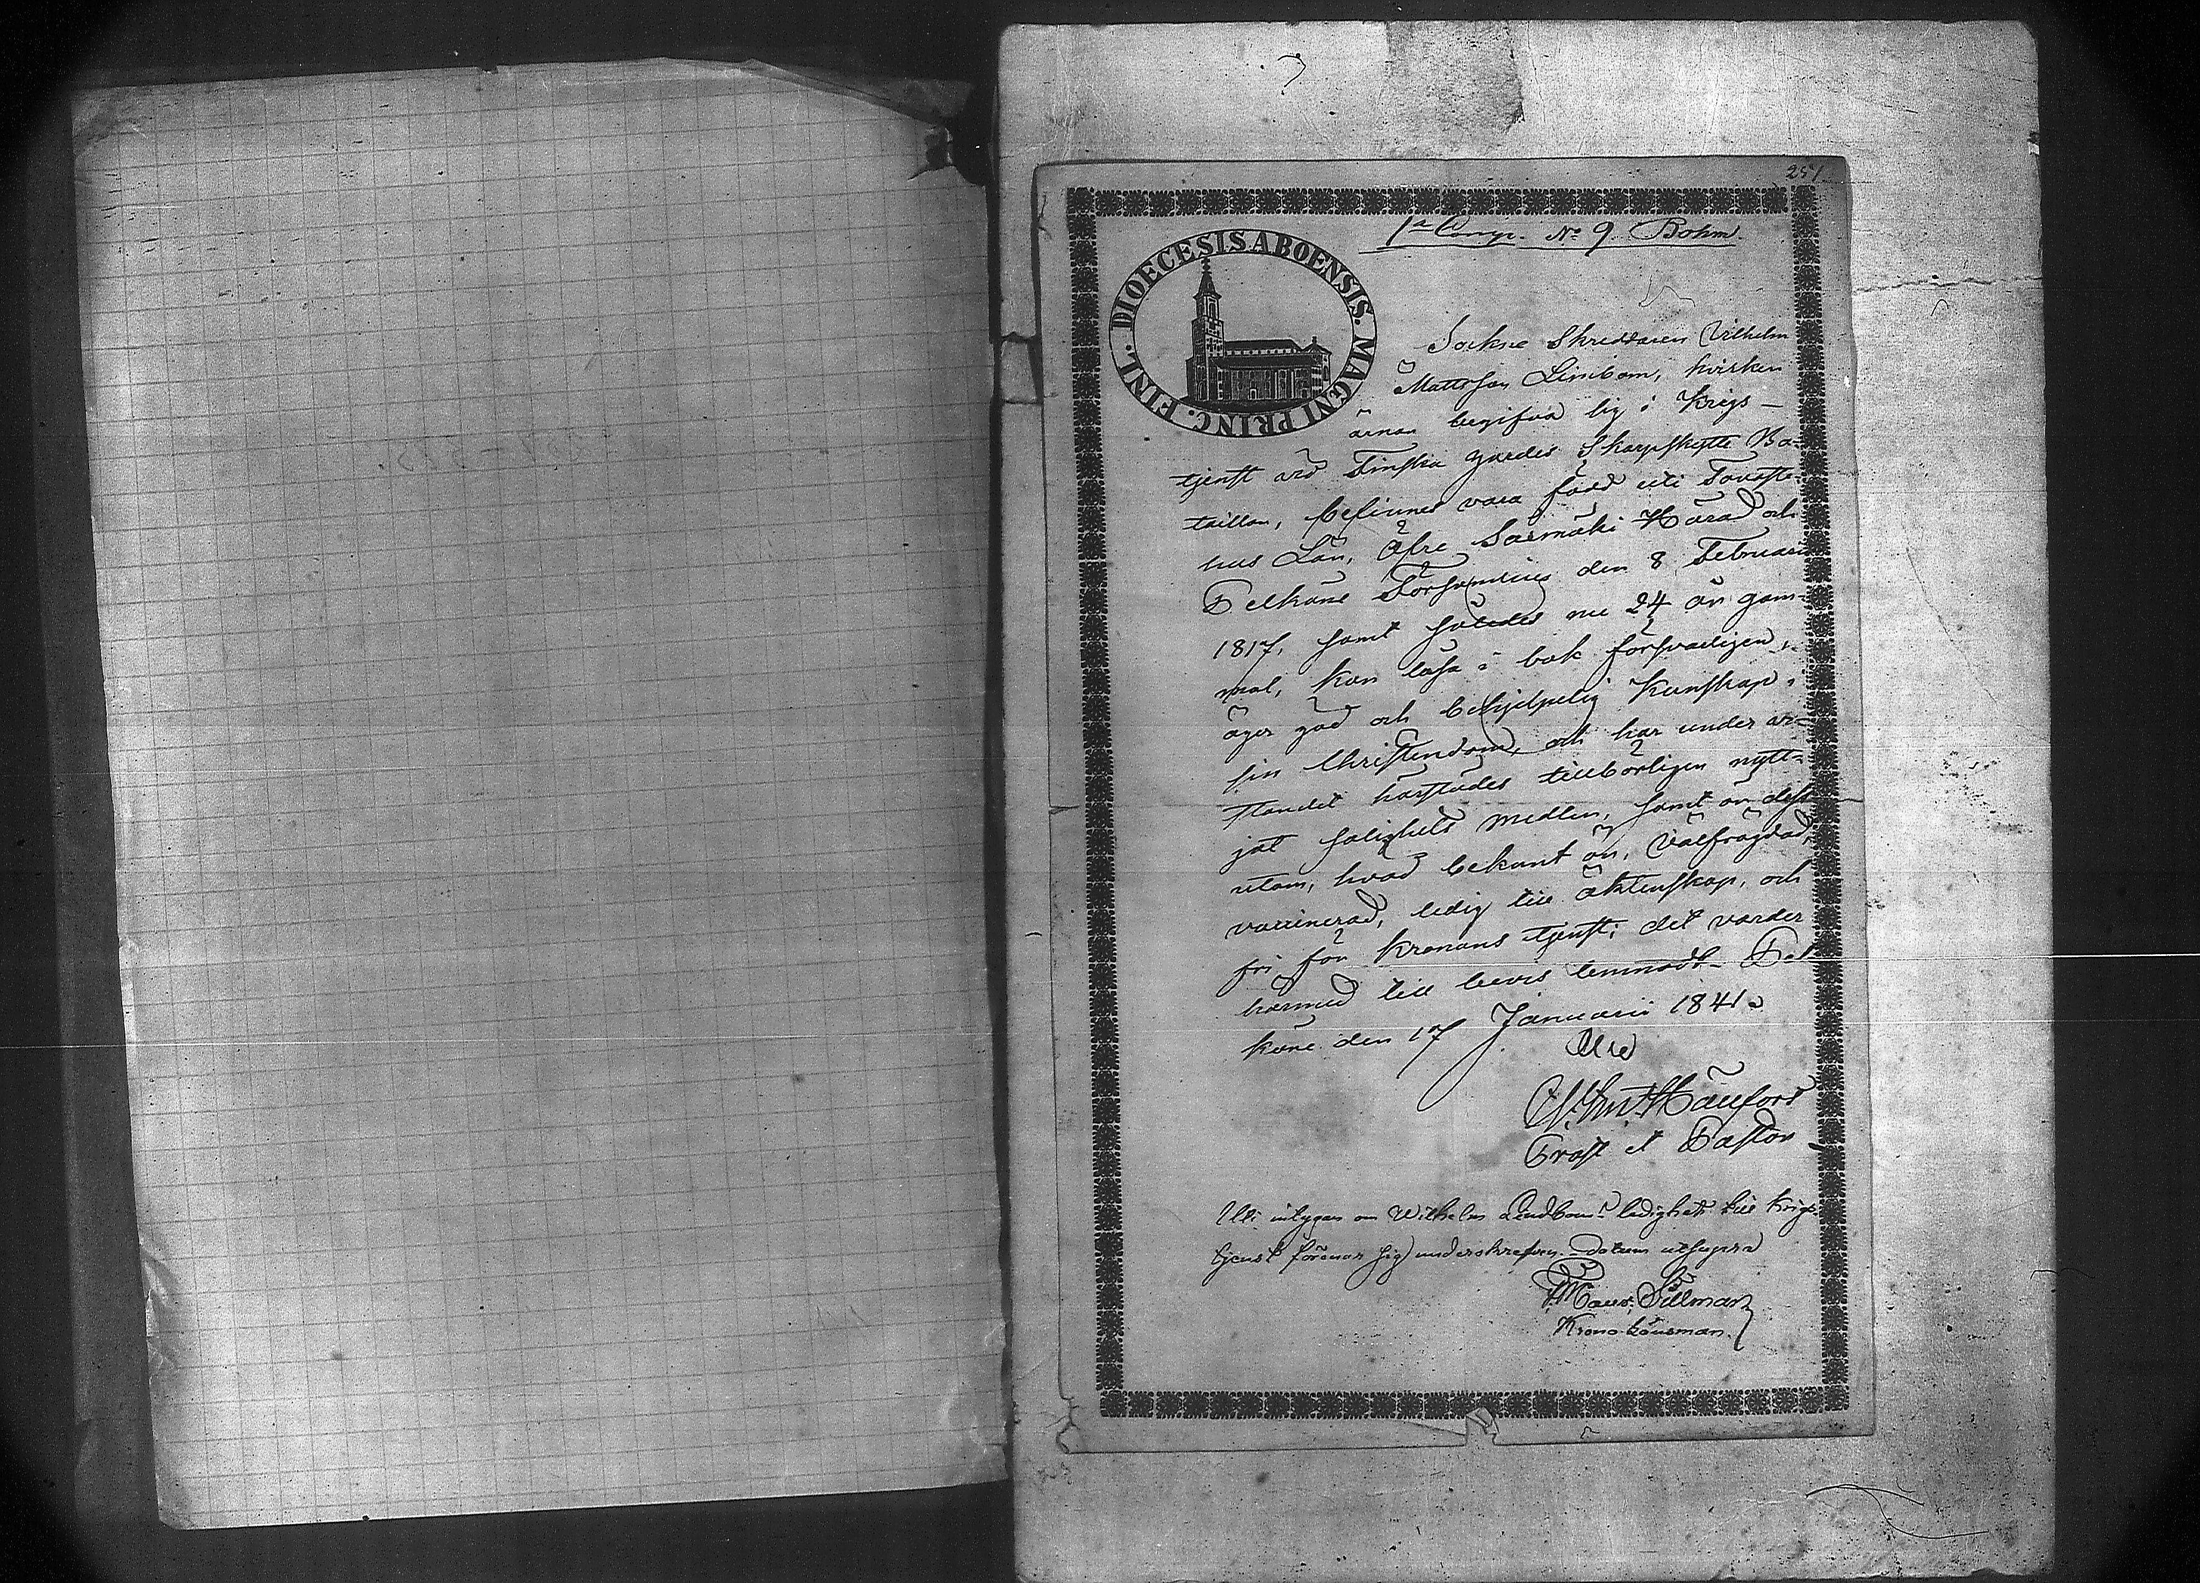 251
1a Comp. No 9. Bohm.
DIOECESIS ABOENSIS. MAGNI PRINC. FINL.
Sockne Skreddaren Vilhelm
Mattsson Lindbom, hvilken
ärnar begifva sig i Krigs-
tjenst vid Finska Gardes Skarpskytte Ba-
taillon, befinnes vara född uti Tavaste-
hus Län, Öfre Sasmäki Härad och
Pelkäne Församling den 8 Februarii
1817, samt således nu 24 år gam-
mal, kan läsa i bok försvarligen,
äger god och behjelpelig kunskap i
sin Christendom, och har under vi-
standet härstädes tillbörligen nytt-
jat salighets medlen, samt är dess
utom, hvad bekant är, välfrägdad,
vaccinerad, ledig till äktenskap, och
fri för Kronans tjenst; det varder
härmed till bevis lemnadt. Pel
käne den 17 Januarii 1841.
Prost et Pastor
Uti intygan om Wilhelm Lindboms ledighet till Krigs
tjenst förenar sig undertecknad. datum utsupra
Maur. Sillman
Kronolänsman.